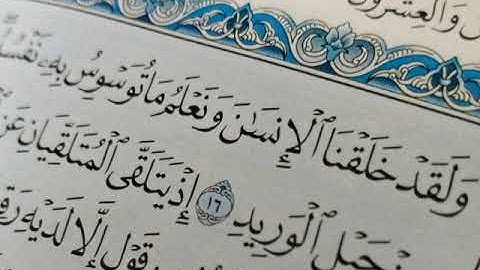 وَالْعِشْرُونَ
وَلَقَدْ خَلَقْنَا ٱلْإِنسَٰنَ وَنَعْلَمُ مَا تُوَسْوِسُ بِهِۦ نَفْسُهُ
حَبْلِ ٱلْوَرِيدِ ١٦ إِذْ يَتَلَقَّى ٱلْمُتَلَقِّيَانِ عَنِ
قَوْلٍ إِلَّا لَدَيْهِ رَقِ